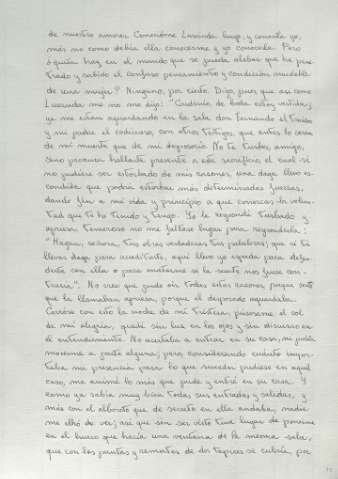 de nuestros amores. Conocióme Luscinda luego, y conocíla yo,
mas no como debía ella conocerme y yo conocerla. Pero
¿quién hay en el mundo que se pueda alabar que ha pene-
trado y sabido el confuso pensamiento y condición mudable
de una mujer? Ninguno, por cierto. Digo, pues, que así como
Luscinda me vio me dijo: "Cardenio de boda estoy vestida;
ya me están aguardando en la sala don Fernando el traidor
y mi padre el codicioso, con otros testigos, que antes lo serán
de mi muerte que de mi desposorio. No te turbes, amigo,
sino procura hallarte presente a este sacrificio el cual si
no pudiere ser estorbado de mis razones, una daga llevo es-
condida que podrá estorbar más determinadas fuerzas,
dando fin a mi vida y principio a que conozcas la volun-
tad que te he tenido y tengo. Yo le respondí turbado y
apriesa temeroso no me faltase lugar para responderla:
"Hagan, señora, tus obras verdaderas tus palabras; que si tú
llevas daga para acreditarte, aquí llevo yo espada para defen-
derte con ella o para matarme si la suerte nos fuese con-
traria". No creo que pudo oír todas estas razones porque sentí
que la llamaban apriesa, porque el desposado aguardaba.
Cerróse con esto la noche de mi tristeza, púsoseme el sol
de mi alegría, quedé sin luz en los ojos y sin discurso en
el entendimiento. No acertaba a entrar en su casa, ni podía
moverme a parte alguna; pero considerando cuánto impor-
taba mi presencia para lo que suceder pudiese en aquel
caso, me animé lo más que pude y entré en su casa. Y
como ya sabía muy bien todas sus entradas y salidas, y
más con el alboroto que de secreto en ella andaba, nadie
me echó de ver; así que sin ser visto tuve lugar de ponerme
en el hueco que hacía una ventana de la mesma sala,
que con las puntas y remates de dos tapices se cubría, por